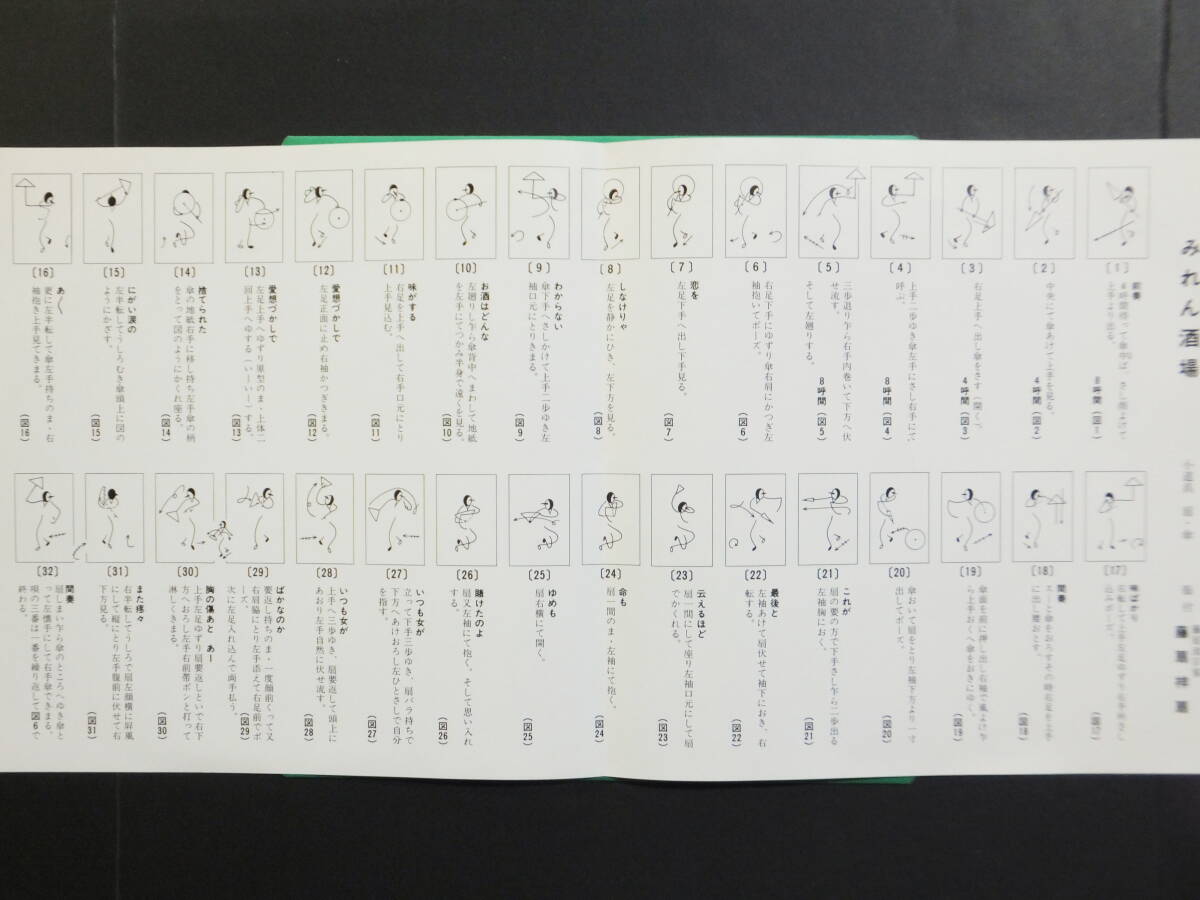 みれん酒場
小道具 扇・傘
藤
〔1〕
前奏
上手より出る。
8呼間（図1）
〔2〕
中央にて傘あけて上手を見る。
4呼間（図2）
〔3〕
右足上手へ出し傘をさす（開く）。
4呼間（図3）
〔4〕
上手二歩ゆき傘左手にさし右手にて
呼ぶ。
8呼間（図4）
〔5〕
三歩退り乍ら右手内巻いて下方へ伏
せ流す。
そして左廻りする。
8呼間（図5）
〔6〕
右足下手にゆずり傘右肩にかつぎ左
袖抱いてポーズ。
（図6）
〔7〕
恋を
左足下手へ出し下手見る。
（図7）
〔8〕
しなけりゃ
左足を静かにひき、左下方を見る。
（図8）
〔9〕
わからない
傘下手へさしかけて上手二歩ゆき左
袖口元にとりきまる。
（図9）
〔10〕
お酒はどんな
左廻りし乍ら傘背中へまわして地紙
を左手にてつかみ半身で遠くを見る。
（図10）
〔11〕
味がする
右足を上手へ出して右手口元にとり
上手見込む。
（図11）
〔12〕
愛想づかしで
左足正面に止め右袖かつぎきまる。
（図12）
〔13〕
愛想づかしで
左足上手へゆずり原型のまゝ上体二
回上手へゆする（いーいー）する。
（図13）
〔14〕
捨てられた
傘の地紙右手に移し持ち左手傘の柄
をとって図のようにかくれ座る。
（図14）
〔15〕
にがい涙の
左半転してうしろむき傘頭上に図の
ようにかざす。
（図15）
〔16〕
あゝ〱
更に左半転して傘左手持ちのまゝ右
袖抱き上手見てきまる。
（図16）
〔17〕
込みポーズ。
（図17）
〔18〕
間奏
に出し腰おとす。
（図18）
〔19〕
傘面を前に押し出し右袖で風よけ乍
ら上手おくへ傘をおきにゆく。
（図19）
〔20〕
傘おいて扇をとり左袖下方より一寸
出してポーズ。
（図20）
〔21〕
これが
扇の要の方で下手さし乍ら二歩出る
左袖胸におく。
（図21）
〔22〕
最後と
左袖あけて扇伏せて袖下におき、右
転する。
（図22）
〔23〕
云えるほど
扇一間にして座り左袖口元にして扇
でかくれる。
（図23）
〔24〕
命も
扇一間のまゝ左袖にて抱く。
（図24）
〔25〕
ゆめも
扇右横にて開く。
（図25）
〔26〕
賭けたのよ
扇又左袖にて抱く。そして思い入れ
する。
（図26）
〔27〕
いつも女が
立って下手三歩ゆき、扇バラ持ちで
下方へあけおろし左ひとさしで自分
を指す。
（図27）
〔28〕
いつも女が
上手へ三歩ゆき、扇要返して頭上に
あおり左手自然に伏せ流す。
（図28）
〔29〕
ばかなのか
要返し持ちのまゝ一度顔前くって又
右肩脇にとり左手添えて右足前でポ
ーズ。
次に左足入れ込んで両手払う。
（図29）
〔30〕
胸の傷あと あー
上手左足ゆずり扇要返しといで右下
方へおろし左手右前帯ポンと打って
淋しくきまる。
（図30）
〔31〕
また疼々
右半転してうしろで扇左顔横に屏風
にして縦にとり左手腹前に伏せて右
下方見る。
（図31）
〔32〕
間奏
扇しまい乍ら傘のところへゆき傘と
って左懐手にして右手傘できまる。
唄の三番は一番を繰り返して図6で
終わる。
（図32）